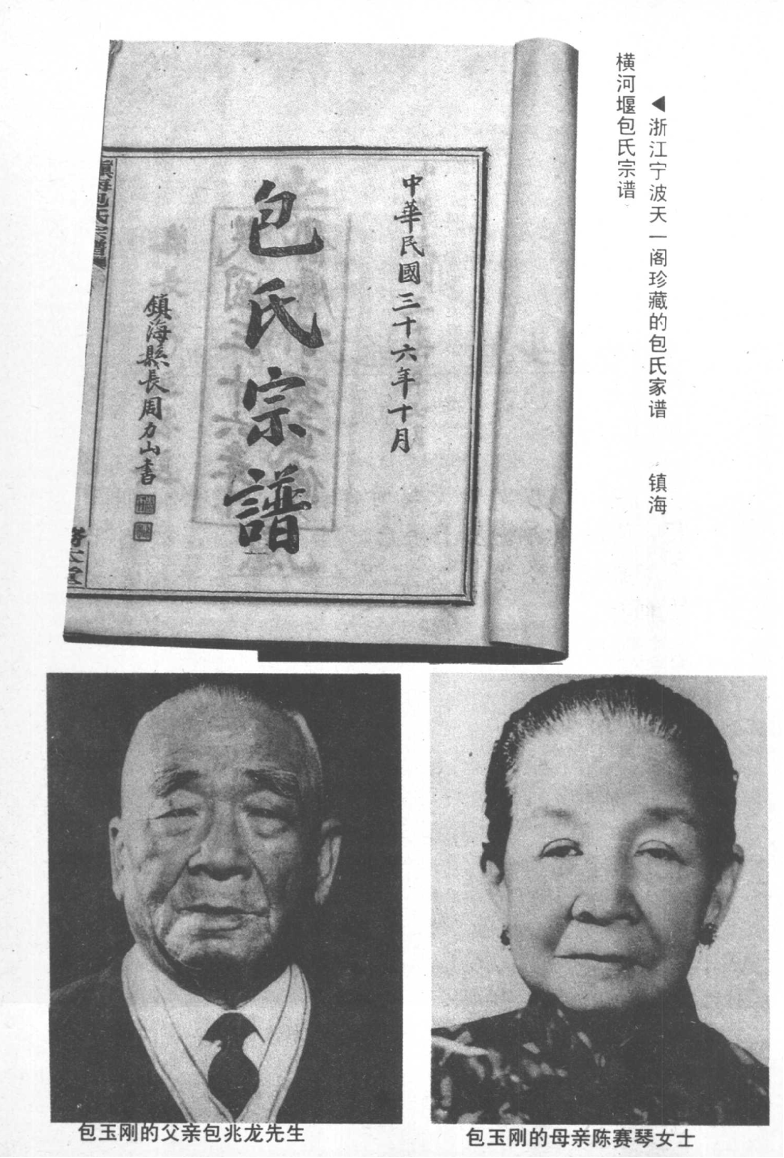 ◀浙江宁波天一阁珍藏的包氏家谱 镇海
横河堰包氏宗谱
中華民國三十六年十月
包氏宗譜
鎮海縣長周力山書
鎮海包氏宗譜
包玉刚的父亲包兆龙先生
包玉刚的母亲陈赛琴女士